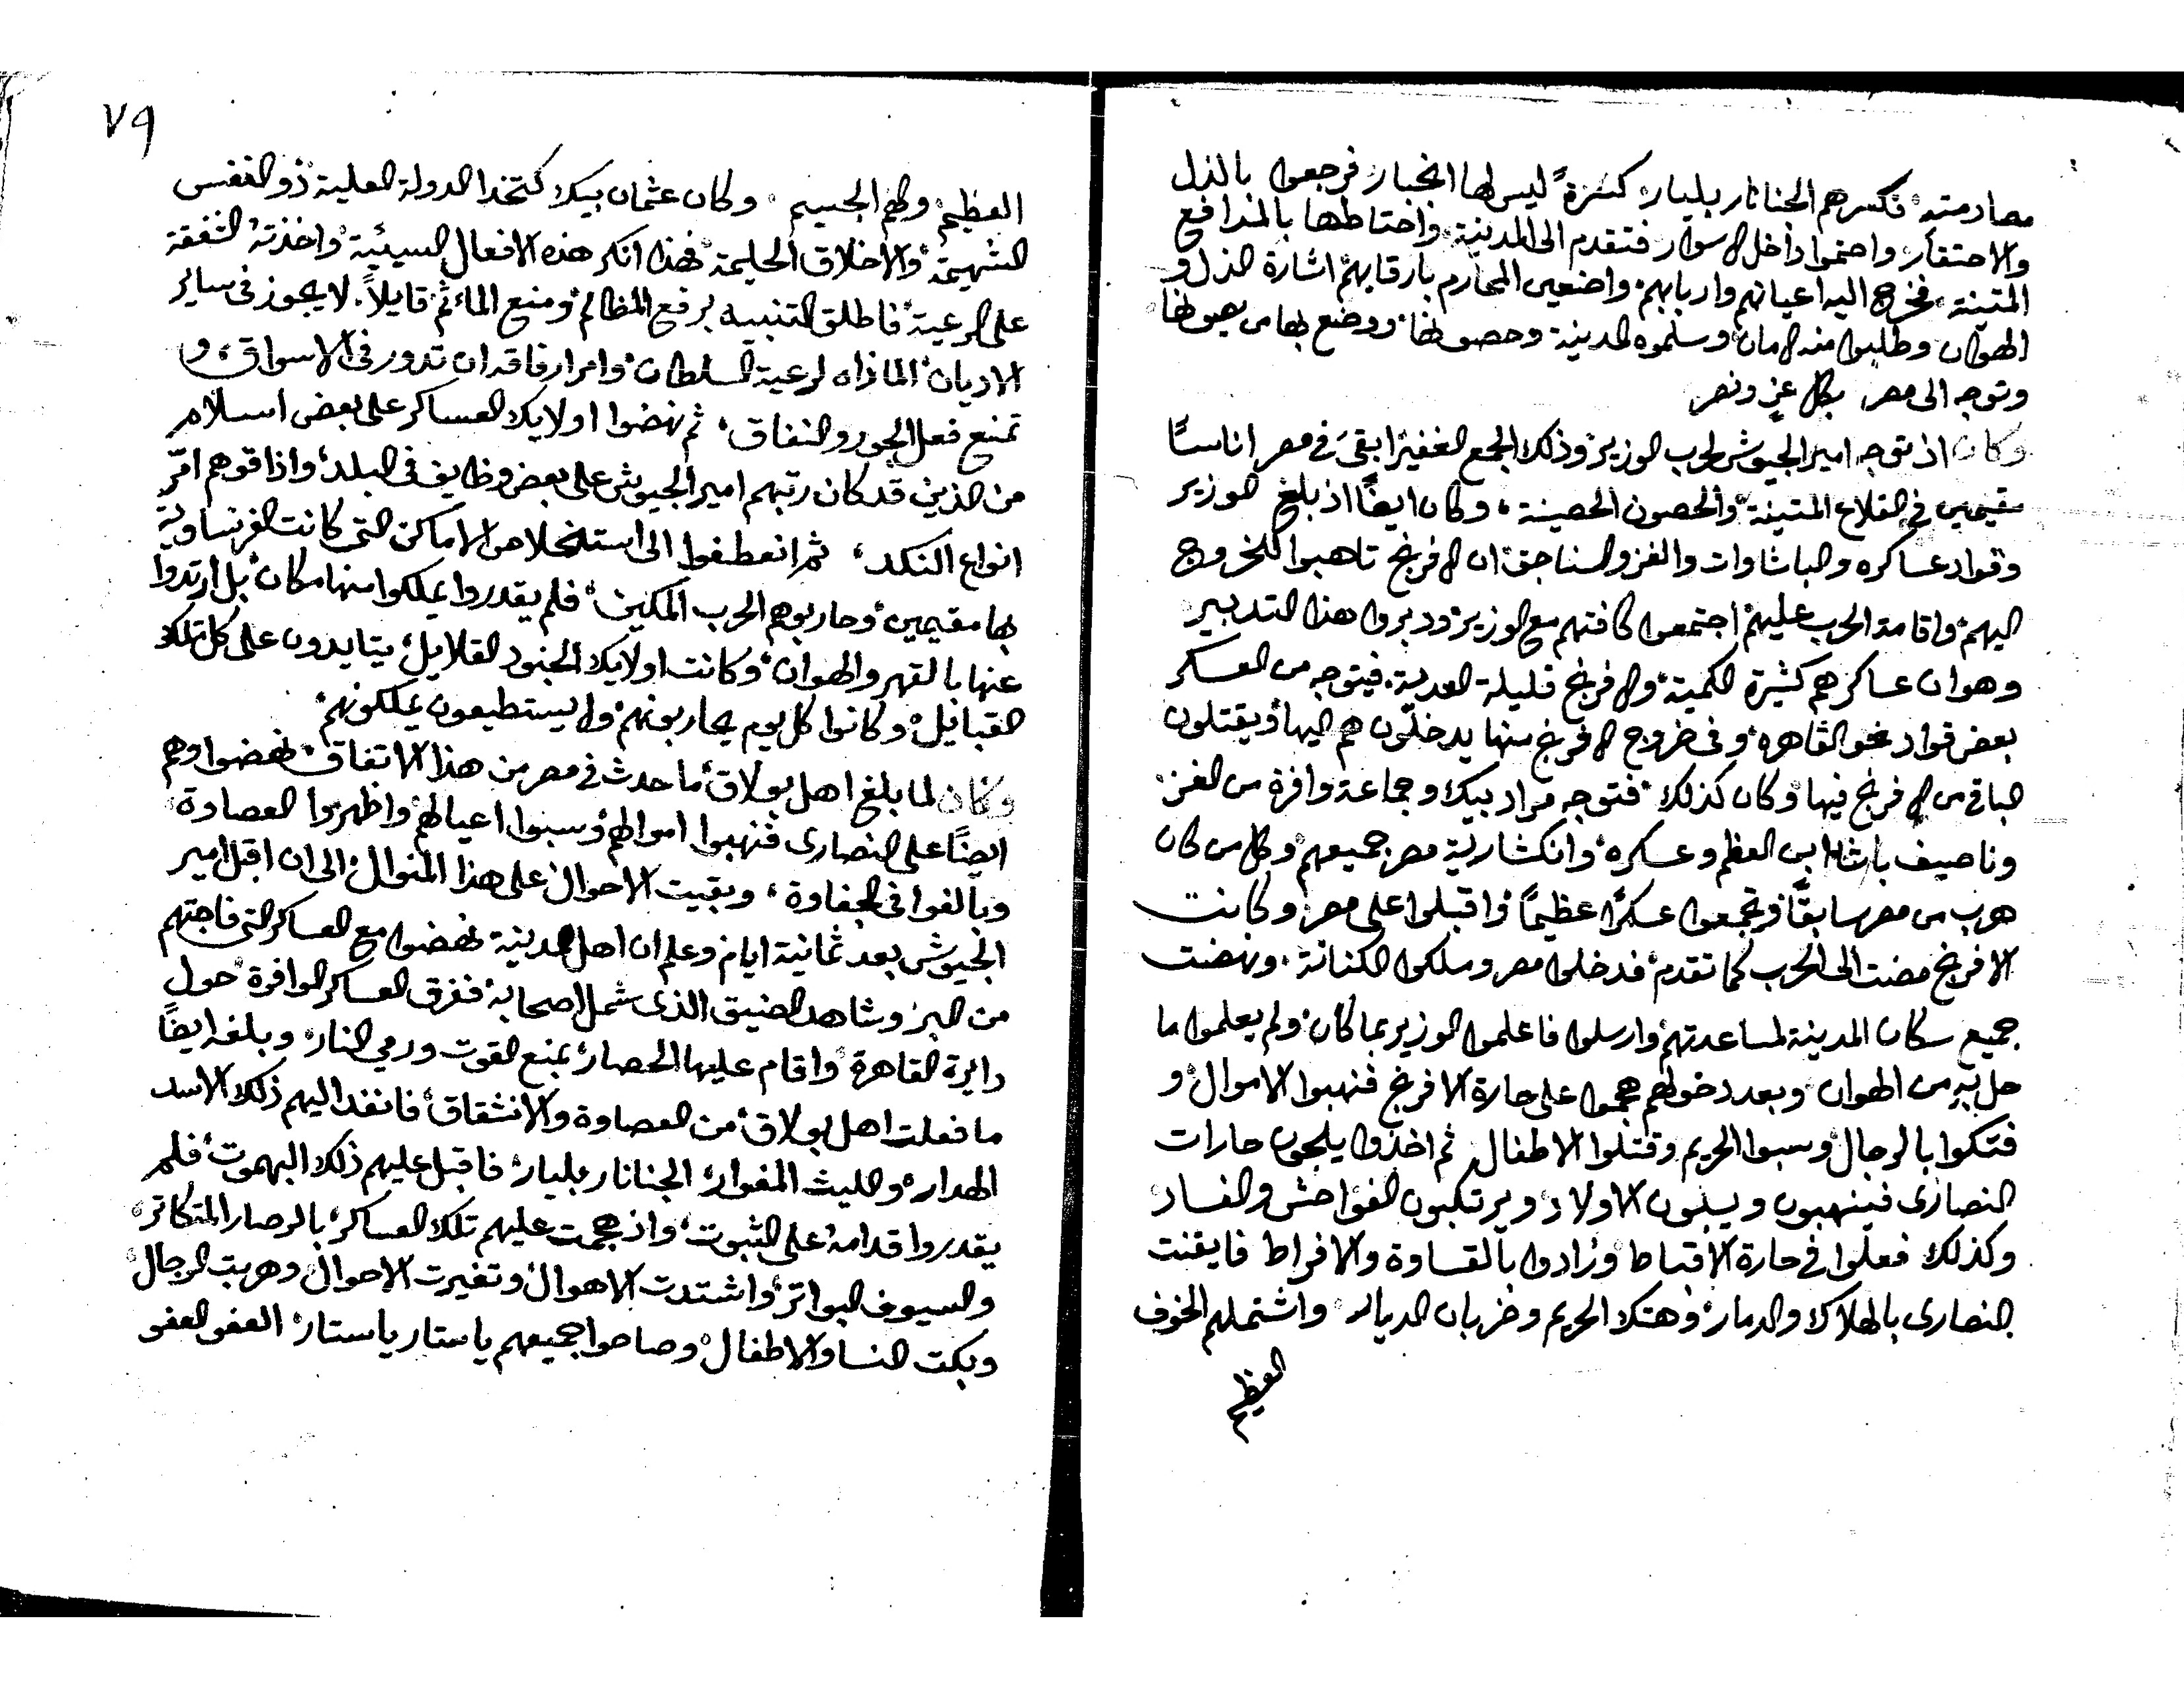 مصادمته فكسرهم الجنانار بليار كسرةً ليس لها انجبار فرجعوا بالذل
والاحتقار واحتموا داخل الاسوار فتقدم الى المدينة واحتاطها بالمدافع
المتينة فخرج اليه اعيانهم واربابهم واضعين المحارم بارقابهم اشارة الذل و
الهوان وطلبوا منه الامان وسلموه المدينة وحصونها ووضع بها من يصونها
وتوجه الى مصر بكل عزٍ ونصر
وكان اذ توجه امير الجيوش لحرب الوزير وذلك الجمع الغفير ابقىَ في مصر اناسًا
مقيمين في القلاع المتينة والحصون الحصينة وكان ايضًا اذ بلغ الوزير
وقواد عساكره والباشاوات والغز والسناجق ان الافرنج تاهبوا للخروج
اليهم واقامة الحرب عليهم اجتمعوا كافتهم مع الوزير ودبروا هذا التدبير
وهو ان عساكرهم كثيرة الكمية والافرنج قليلة العدية فيتوجه من العسكر
بعض قواد نحو القاهره وفى خروج الافرنج منها يدخلون هم اليها ويقتلون
الباقى من الافرنج فيها وكان كذلك فتوجه مراد بيك وجماعة وافرة من الغز
وناصيف باشا ابن العظم وعسكره وانكشارية مصر جميعهم وكل من كان
هرب من مصر سابقًا وتجمعوا عسكرًا عظيمًا واقبلوا على مصر وكانت
الافرنج مضت الى الحرب كما تقدم فدخلوا مصر وملكوا الكنانة ونهضت
جميع سكان المدينة لمساعدتهم وارسلوا فاعلموا الوزير بما كان ولم يعلموا ما
حل بهِ من الهوان وبعد دخولهم هجموا على حارة الافرنج فنهبوا الاموال و
فتكوا بالرجال وسبوا الحريم وقتلوا الاطفال ثم اخذوا يلجون حارات
النصارى فينهبون ويسلبون الاولاد ويرتكبون الفواحش والفساد
وكذلك فعلوا في حارة الاقباط وزادوا بالقساوة والافراط فايقنت
النصارى بالهلاك والدمار وهتك الحريم وخربان الديار واشتملهم الخوف
العظيم
٧٩
العظيم والهم الجسيم وكان عثمان بيك كتخدا الدولة العلية ذو النفس
الشهيمة والاخلاق الحليمة فهذا انكر هذه الافعال السيئية واخذته الشفقة
على الرعية فاطلق التنبيه برفع المظالم ومنع المائثم قايلاً لا يجوز فى ساير
الاديان الماذاه لرعية السلطان وامرار فاقه ان تدور فى الاسواق و
تمنع فعل الجور والنفاق ثم نهضوا اولايك العساكر على بعض اسلام
من الذين قد كان رتبهم امير الجيوش على بعض وظايف فى البلد واذاقوهم امّر
انواع النكد ثم انعطفوا الى استخلاص الاماكن التى كانت الفرنساوية
بها مقيمين وحاربوهم الحرب المكين فلم يقدروا يملكوا منها مكان بل ارتدوا
عنها بالقهر والهوان وكانت اولايك الجنود القلايل يتايدون على كل تلك
القبايل وكانوا كل يوم يحاربونهم ولا يستطيعون يملكونهم
وكان لما بلغ اهل بولاق ما حدث فى مصر من هذا الاتفاق نهضوا وهم
ايضًا على النصارى فنهبوا اموالهم وسبوا اعيالهم واظهروا العصاوة
وبالغوا فى الجفاوة وبقيت الاحوال على هذا المنوال الى ان اقبل امير
الجيوش بعد ثمانية ايام وعلم ان اهل المدينة نهضوا مع العساكر التى فاجتهم
من البر وشاهد الضيق الذى شمل اصحابه ففرق العساكر الوافرة حول
دايرة القاهرة واقام عليها الحصار بمنع القوت ورمي النار وبلغه ايضًا
ما فعلت اهل بولاق من العصاوة والانشقاق فانفد اليهم ذلك الاسد
الهدار والليث المغوار الجنانار بليار فاقبل عليهم ذلك البهموت فلم
يقدروا قدامه على الثبوت واذ هجمت عليهم تلك العساكر بالرصار المتكاثر
والسيوف البواتر واشتدت الاهوال وتغيرت الاحوال وهربت الرجال
وبكت النسا والاطفال وصاحوا جميعهم ياستار ياستار العفو العفو